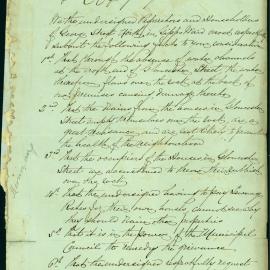 We the undersigned Proprietors and Householders
of George Street North, in Gipps Ward most respectfully
submit the following facts to your consideration
1st That through the absence of water channels
at the north end of Gloucester Street, the water
down from flows over the rock, at the back of
our premises causing damage thereto
2nd That the Drains from the houses in Gloucester
Street empty themselves over the rock, are a
great nuisance, and are most likely to prove
the health of the neighbourhood
3rd That the occupiers of the Houses in Gloucester
Street are accustomed to throw their rubbish
over the rock
4th That the undersigned having to pay
Rates for their town, houses cannot see why
they should drain other properties
5th That it is in the Power of the Municipal
Council to remedy the grievance
6th That the undersigned respectfully request